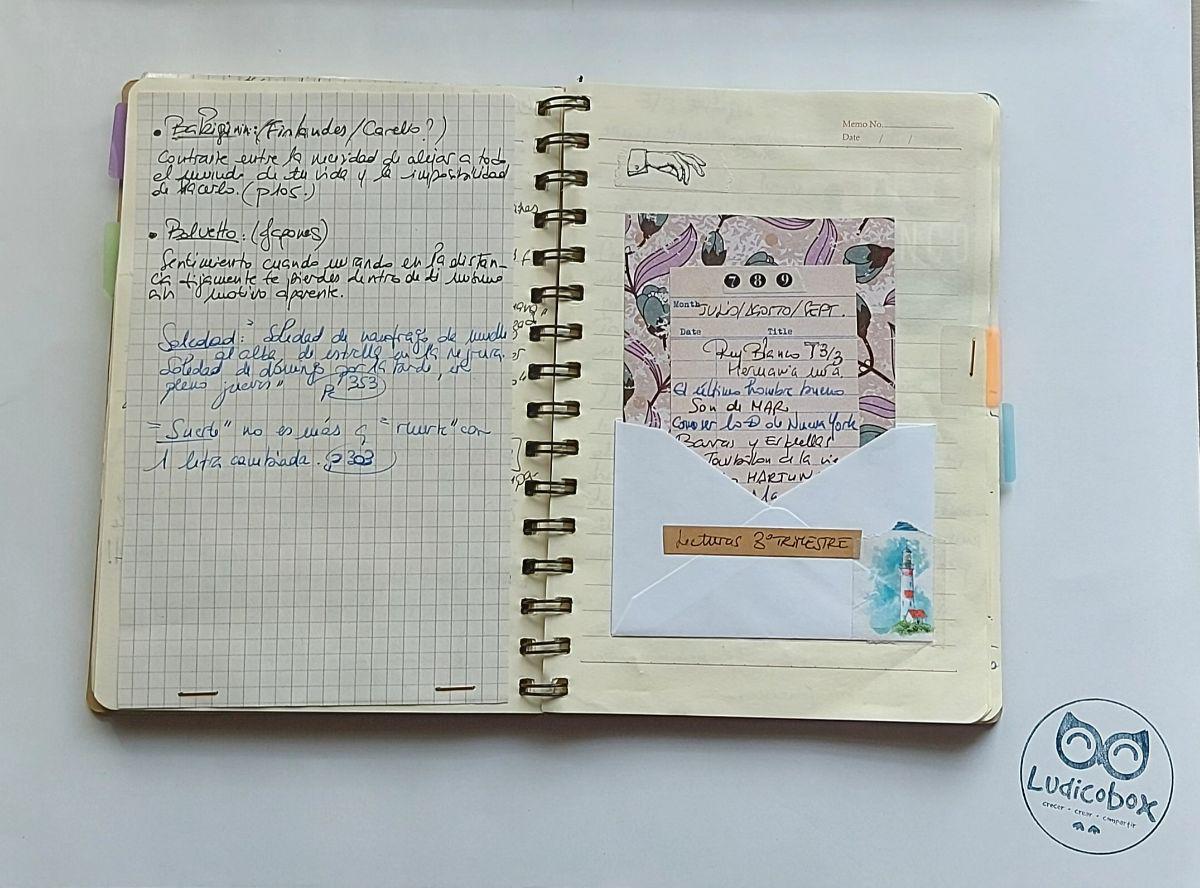 (Finlandes/Carelio?)
Contraste entre la necesidad de alejar a todo
el mundo de tu vida y la imposibilidad
de hacerlo. (p105.)
(Japones)
Sentimiento cuando mirando en la distan-
cia fijamente te pierdes dentro de ti mismo
motivo aparente.
Soledad: "Soledad de naufrago de
al alba, de estrella en la negrura.
Soledad de domingo por la tarde, en
pleno jueves" p 353
"Suerte" no es más q "muerte" con
1 letra cambiada. p 303
Memo No.
Date / /
7 8 9
Month JULIO/AGOSTO/SEPT.
Date Title
Rey Blanco T3/3
Hermania
El último hombre bueno
Son de MAR
Comer los D de Nueva York
Barras y Estrellas
Tourbillon de la vie
Lecturas 3º TRIMESTRE
Ludicobox
crecer • crear • compartir